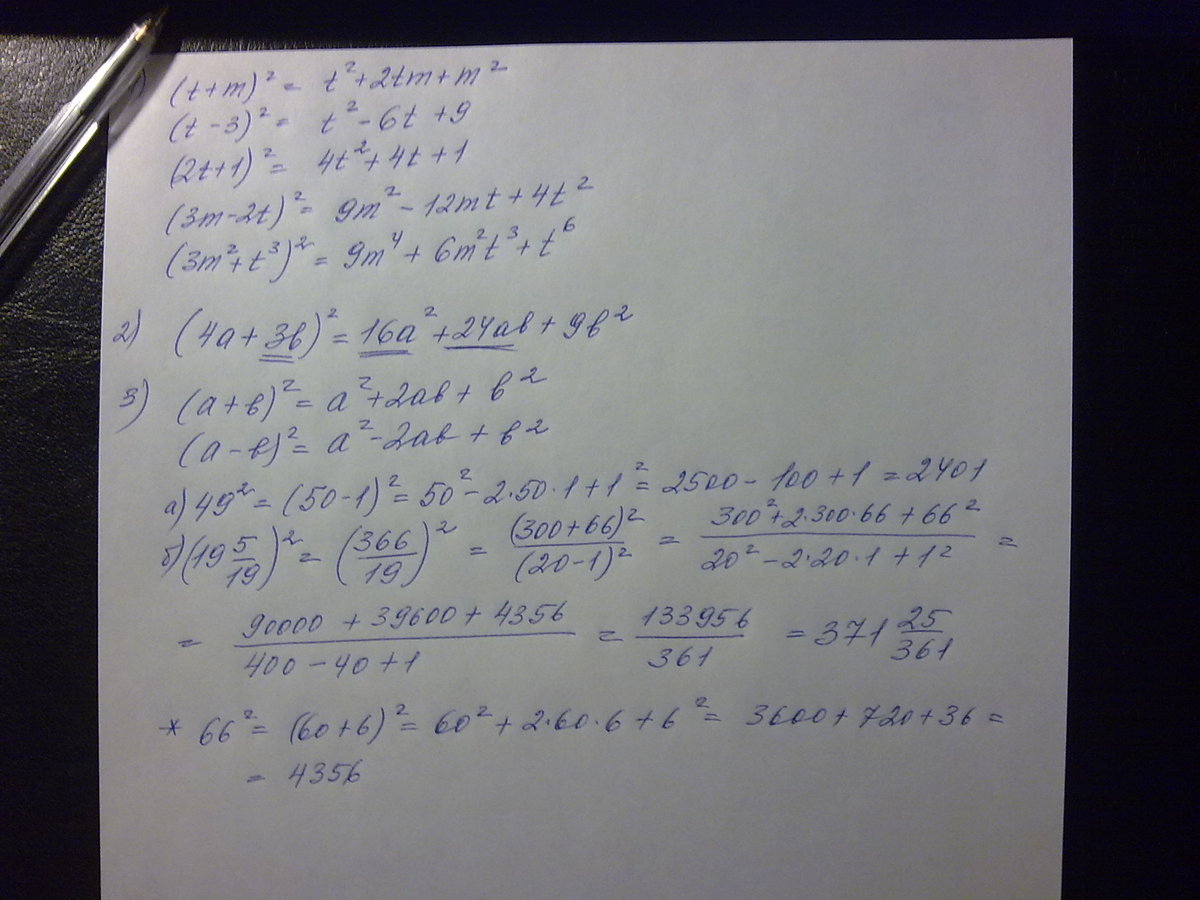 (t+m)² = t²+2tm+m²
(t-3)² = t²-6t+9
(2t+1)² = 4t²+4t+1
(3m-2t)² = 9m²-12mt+4t²
(3m²+t³)² = 9m⁴+6m²t³+t⁶
2) (4a+3в)² = 16a²+24aв+9в²
3) (a+в)² = a²+2aв+в²
(a-в)² = a²-2aв+в²
а) 49² = (50-1)² = 50²-2·50·1+1² = 2500-100+1 = 2401
б) (19 5/19)² = (366/19)² = (300+66)²/(20-1)² = (300²+2·300·66+66²)/(20²-2·20·1+1²) =
= (90000+39600+4356)/(400-40+1) = 133956/361 = 371 25/361
* 66² = (60+6)² = 60²+2·60·6+6² = 3600+720+36 =
= 4356